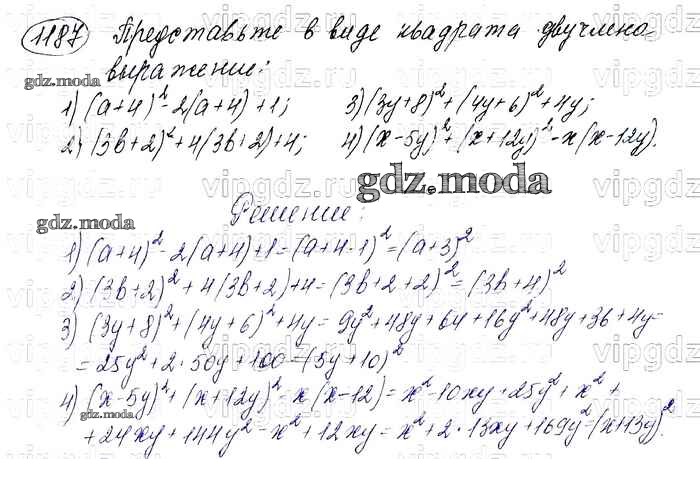 1187 Представьте в виде квадрата двучлена
выражение:
1) (a+4)² - 2(a+4) + 1; 3) (3y+8)² + (4y+6)² + 4y;
2) (3b+2)² + 4(3b+2) + 4; 4) (x-5y)² + (x+12y)² - x(x-12y).
gdz.moda
gdz.moda
gdz.moda
Решение:
1) (a+4)² - 2(a+4) + 1 = (a+4-1)² = (a+3)²
2) (3b+2)² + 4(3b+2) + 4 = (3b+2+2)² = (3b+4)²
3) (3y+8)² + (4y+6)² + 4y = 9y² + 48y + 64 + 16y² + 48y + 36 + 4y =
= 25y² + 2·50y + 100 = (5y+10)²
4) (x-5y)² + (x+12y)² - x(x-12) = x² - 10xy + 25y² + x² +
gdz.moda
+ 24xy + 144y² - x² + 12xy = x² + 2·13xy + 169y² = (x+13y)².
vipgdz.ru